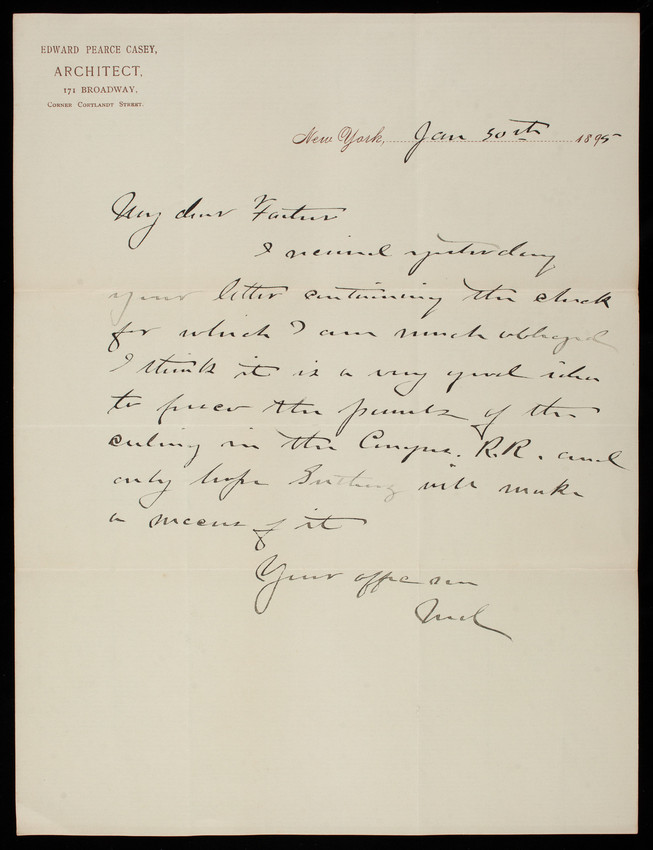 EDWARD PEARCE CASEY,
ARCHITECT,
171 BROADWAY,
CORNER CORTLANDT STREET.
New York, Jan 30th 1895
My dear Father
I received yesterday
your letter containing the check
for which I am much obliged
I think it is a very good idea
to the panels of the
ceiling in the Congre. R.R. and
only hope will make
a success of it
Your affec son
Ned